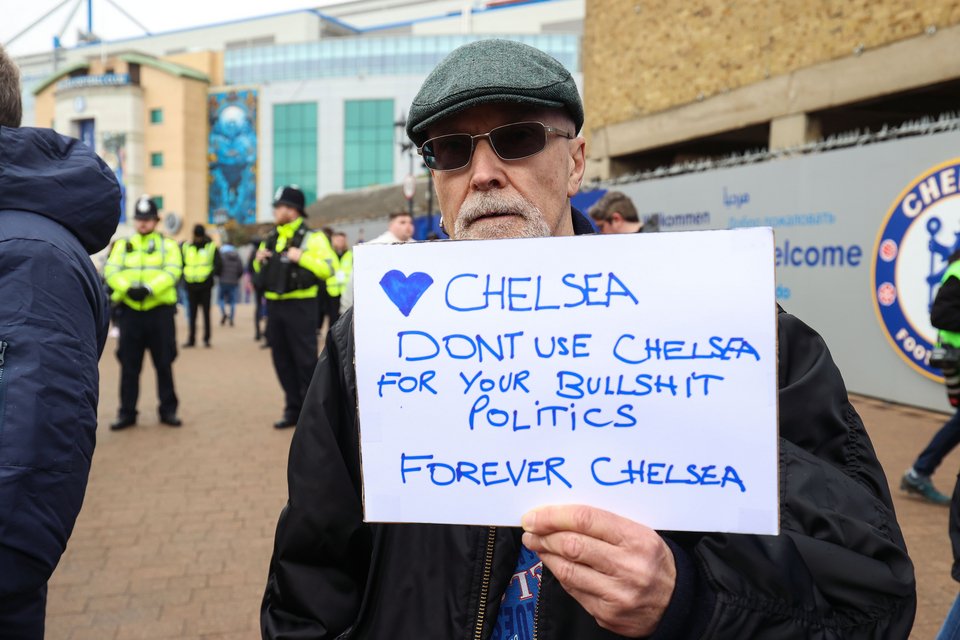 CHELSEA
DONT USE CHELSEA
FOR YOUR BULLSHIT
POLITICS
FOREVER CHELSEA
Willkommen
Добро пожаловать
elcome
CHEL
FOOT